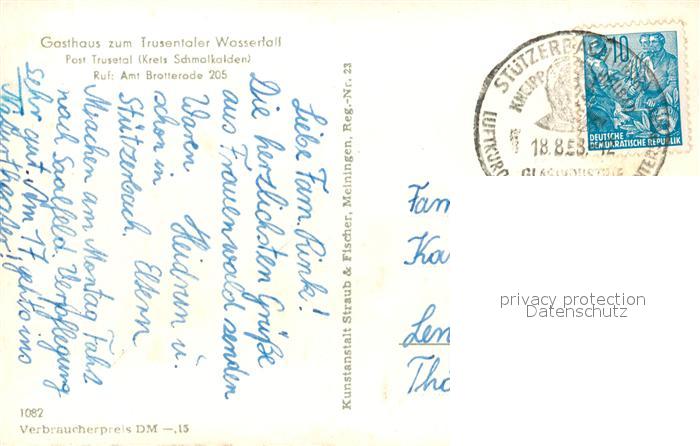 Gasthaus zum Trusentaler Wasserfall
Post Trusetal (Kreis Schmalkalden)
Ruf: Amt Brotterode 205
Liebe Fam. Rink!
Die herzlichsten Grüße
aus Frauenwald senden
Heidrun u.
Eltern
Waren
schon in
Stützerbach.
Machen am Montag Fahrt
nach Saalfeld. Verpflegung
sehr gut. Am 17. geht's ins
Naturtheater!
1082
Verbraucherpreis DM —,15
Kunstanstalt Straub & Fischer, Meiningen, Reg.-Nr. 23
STÜTZERBACH
KNEIPP
LUFTKUR
18.8.58.-12
GLASINDUSTRIE
10
DEUTSCHE
DEMOKRATISCHE REPUBLIK
Fam
Ka
Len
Thä
privacy protection
Datenschutz